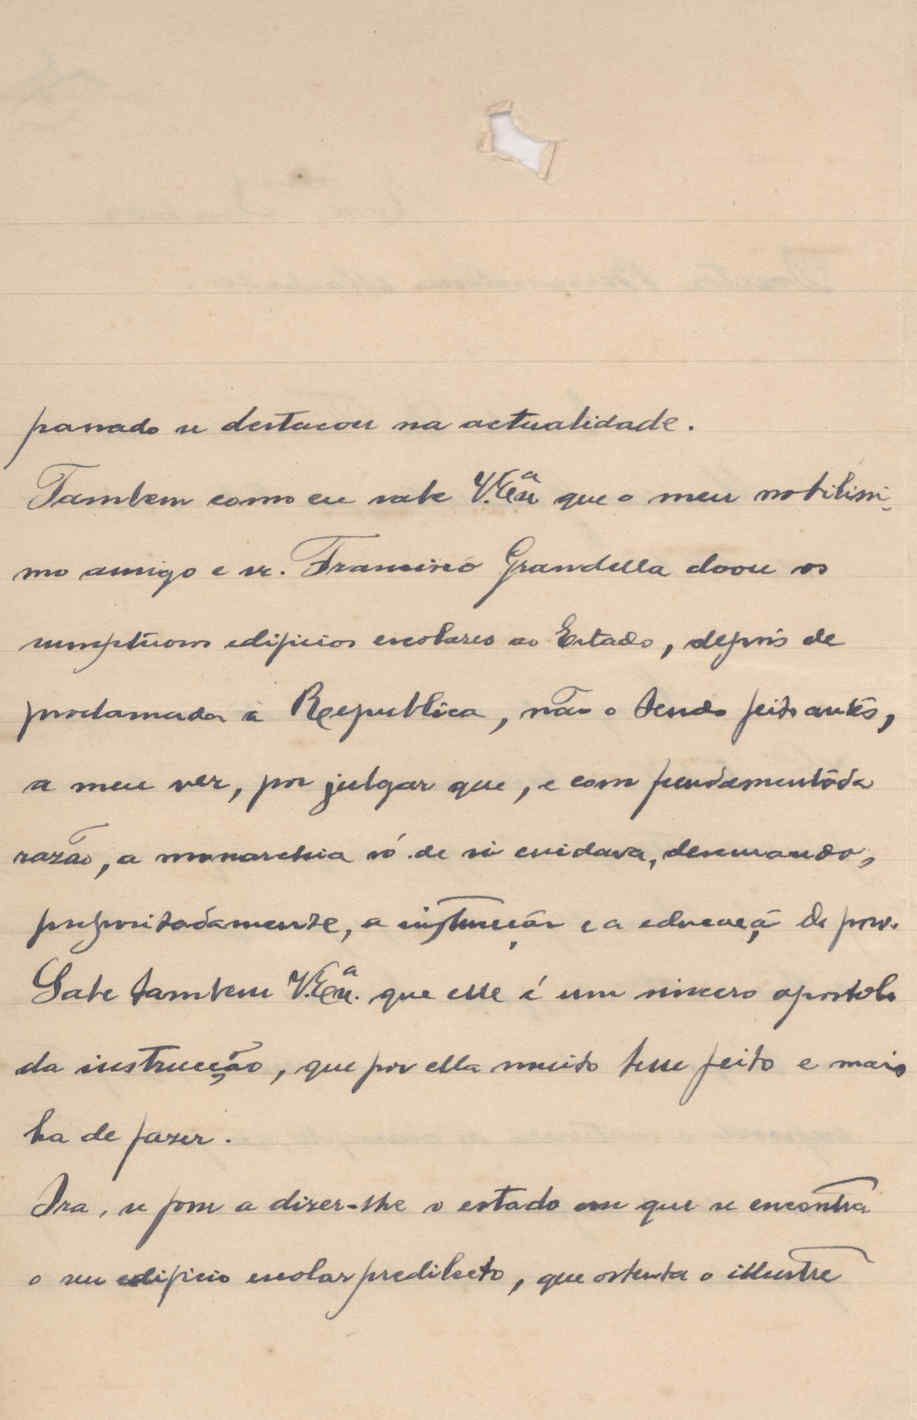 passado se destacou na actualidade.
Tambem como eu sabe V. Exª que o meu nobilissi-
mo amigo e sr. Francisco Grandella doou os
sumptuosos edificios escolares ao Estado, depois de
proclamada a Republica, não o tendo feito antes,
a meu ver, por julgar que, e com fundamentada
razão, a monarchia só de si cuidava, descurando,
propositadamente, a instrucção e a educação do povo.
Sabe tambem V. Exª. que elle é um sincero apostolo
da instrucção, que por ella muito tem feito e mais
ha de fazer.
Ora, se fôr a dizer-lhe o estado em que se encontra
o seu edificio escolar predilecto, que ostenta o illustre